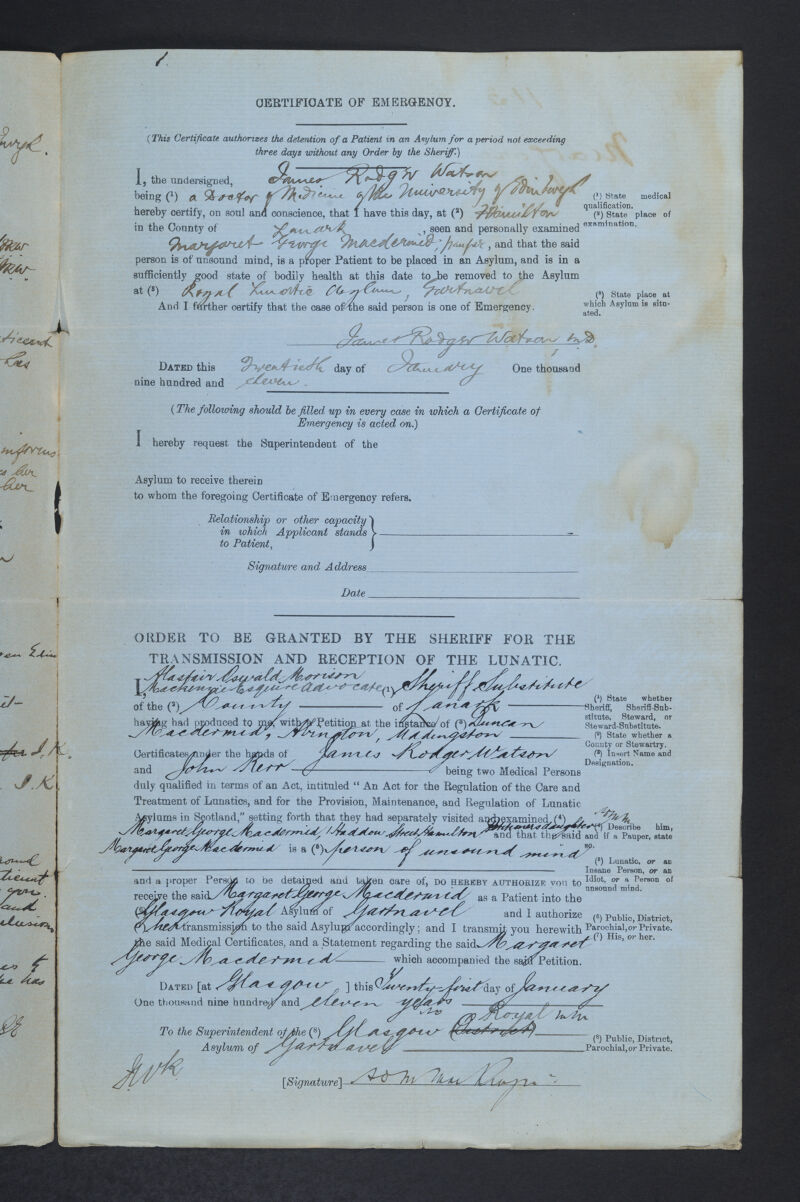 1
CERTIFICATE OF EMERGENCY.
(This Certificate authorizes the detention of a Patient in an Asylum for a period not exceeding
three days without any Order by the Sheriff.)
I, the undersigned, James Rodger Watson
being (¹) a Doctor of Medicine of the University of Edinburgh
hereby certify, on soul and conscience, that I have this day, at (²) Hamilton
in the County of Lanark, seen and personally examined
Margaret George Macdermid, pauper, and that the said
person is of unsound mind, is a proper Patient to be placed in an Asylum, and is in a
sufficiently good state of bodily health at this date to be removed to the Asylum
at (³) Royal Lunatic Asylum, Gartnavel
And I further certify that the case of the said person is one of Emergency.
(¹) State medical
qualification.
(²) State place of
examination.
(³) State place at
which Asylum is situ-
ated.
James Rodger Watson, M.D.
DATED this Twentieth day of January One thousand
nine hundred and eleven.
(The following should be filled up in every case in which a Certificate of
Emergency is acted on.)
I hereby request the Superintendent of the
Asylum to receive therein
to whom the foregoing Certificate of Emergency refers.
Relationship or other capacity
in which Applicant stands
to Patient,
Signature and Address
Date
ORDER TO BE GRANTED BY THE SHERIFF FOR THE
TRANSMISSION AND RECEPTION OF THE LUNATIC.
Alastair Oswald Morison
I, Mackenzie Esquire Advocate (¹) Sheriff Substitute
of the (²) County of Lanark
having had produced to me, with a Petition at the instance of (³) Duncan
Macdermid, Abington, Uddingston
Certificates under the hands of James Rodger Watson
and John Kerr being two Medical Persons
duly qualified in terms of an Act, intituled "An Act for the Regulation of the Care and
Treatment of Lunatics, and for the Provision, Maintenance, and Regulation of Lunatic
Asylums in Scotland," setting forth that they had separately visited and examined (⁴)
Margaret George Macdermid, 1 Haddow Street, Hamilton and that the said
Margaret George Macdermid is a (⁵) person of unsound mind
and a proper Person to be detained and taken care of, DO HEREBY AUTHORIZE YOU to
receive the said Margaret George Macdermid as a Patient into the
(⁶) Glasgow Royal Asylum of Gartnavel and I authorize
(⁷) her transmission to the said Asylum accordingly; and I transmit you herewith
the said Medical Certificates, and a Statement regarding the said Margaret
George Macdermid which accompanied the said Petition.
(¹) State whether
Sheriff, Sheriff-Sub-
stitute, Steward, or
Steward-Substitute.
(²) State whether a
County or Stewartry.
(³) Insert Name and
Designation.
(⁴) Describe him,
and if a Pauper, state
so.
(⁵) Lunatic, or an
Insane Person, or an
Idiot, or a Person of
unsound mind.
(⁶) Public, District,
Parochial, or Private.
(⁷) His, or her.
DATED [at Glasgow ] this Twenty-first day of January
One thousand nine hundred and eleven years
Royal
To the Superintendent of the (⁸) Glasgow District
Asylum of Gartnavel
(⁸) Public, District,
Parochial, or Private.
[Signature]